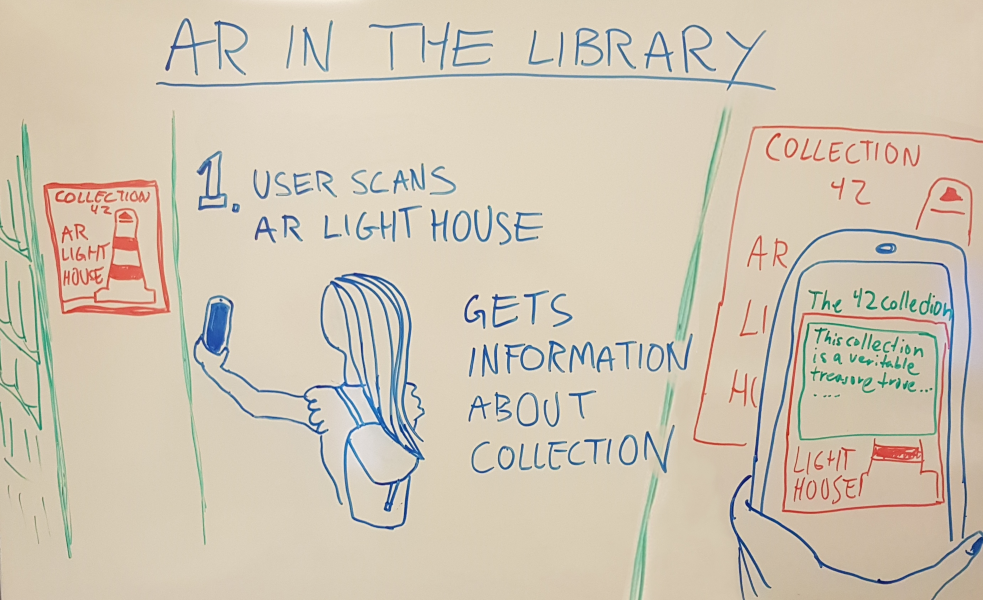 AR IN THE LIBRARY
COLLECTION
42
AR
LIGHT
HOUSE
1. USER SCANS
AR LIGHT HOUSE
GETS
INFORMATION
ABOUT
COLLECTION
COLLECTION
42
AR
LI
HO
The 42 collection
This collection
is a veritable
treasure trove...
....
LIGHT
HOUSE